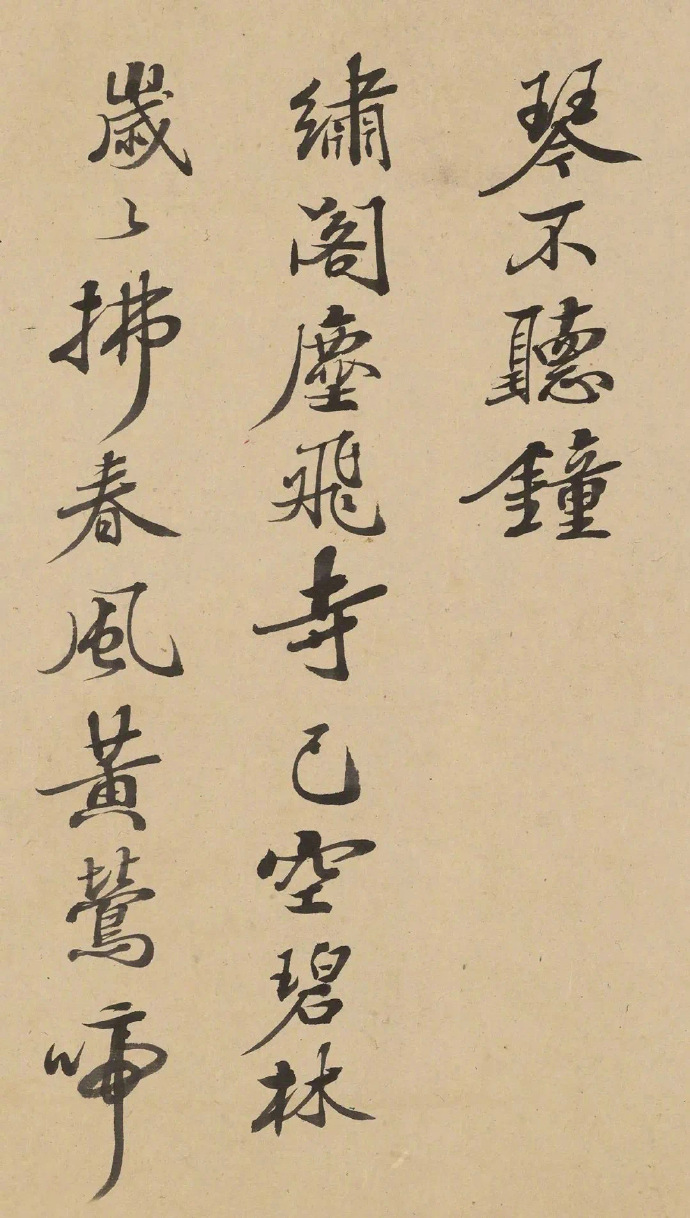 琴不聽鐘
繡閣塵飛寺已空碧林
歲〻拂春風黃鶯啼